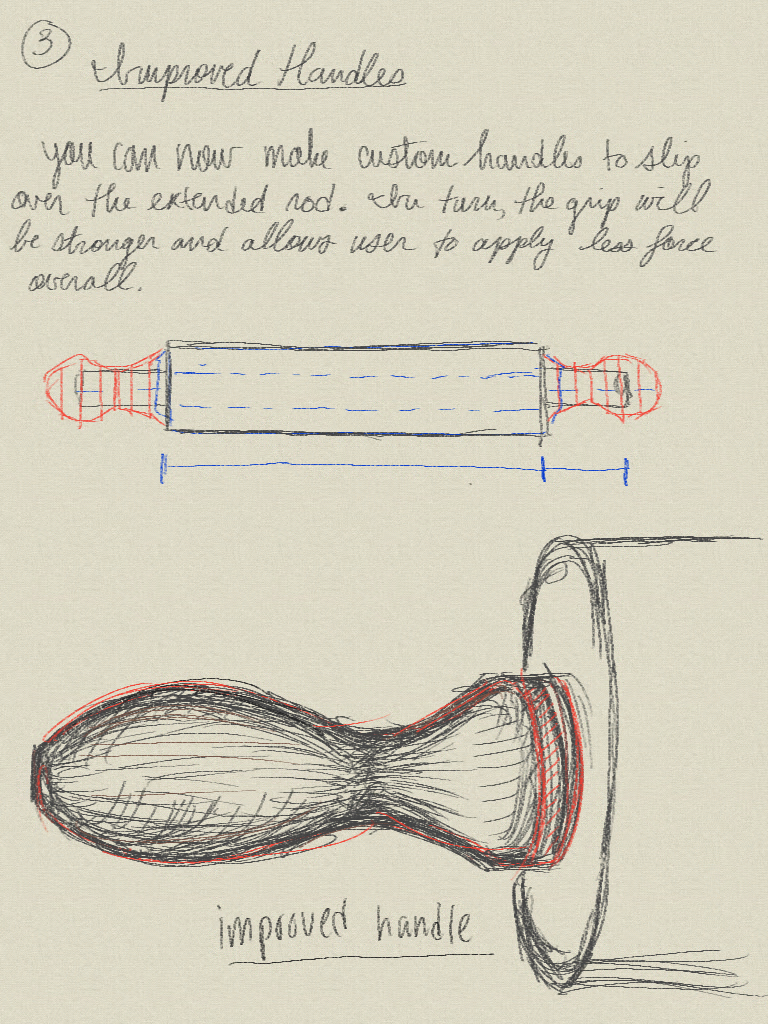 3
Improved Handles
you can now make custom handles to slip
over the extended rod. In turn, the grip will
be stronger and allows user to apply less force
overall.
improved handle